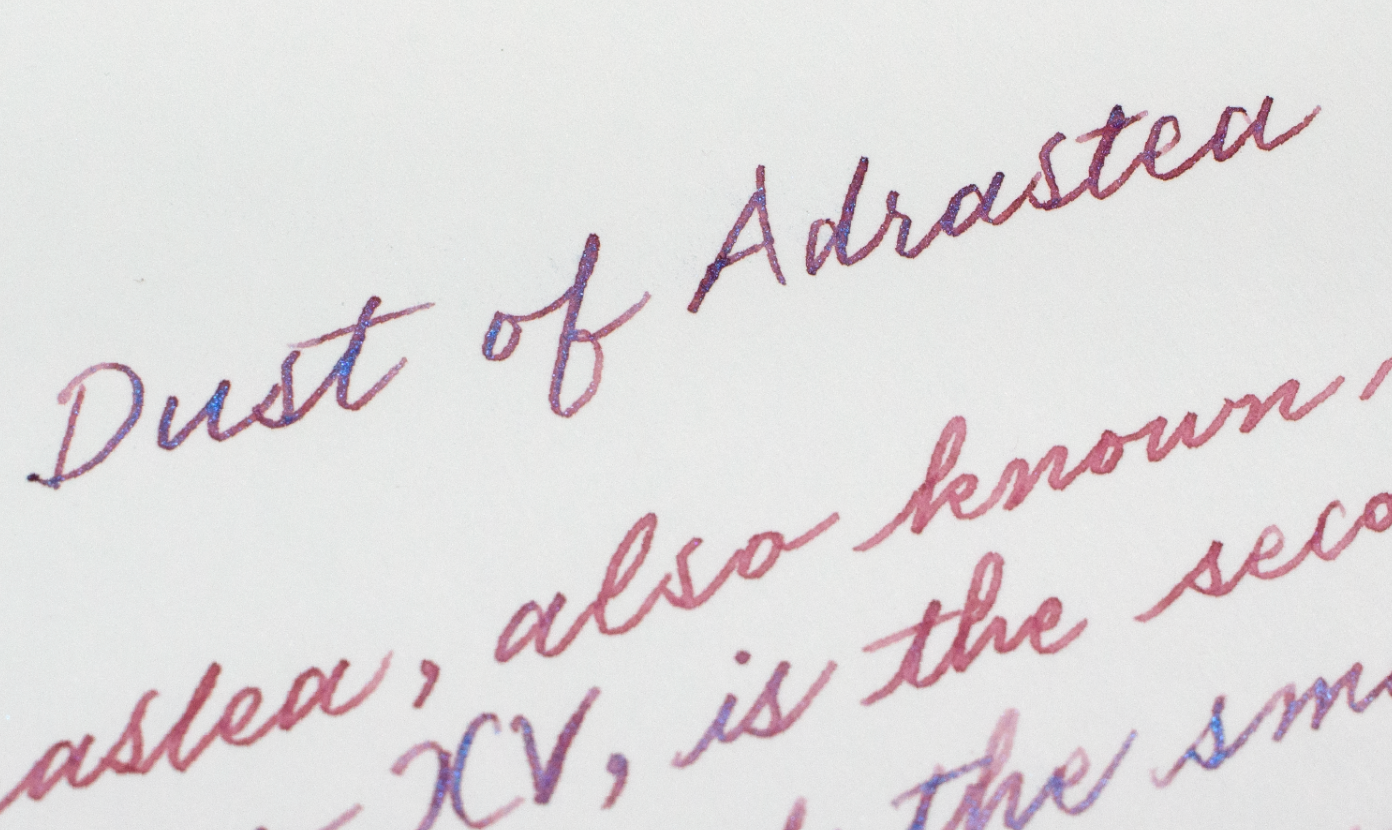 Dust of Adrastea
astea, also known
XV, is the seco
the sm